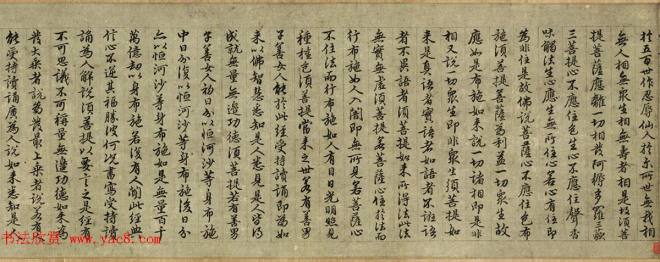 於五百世作忍辱仙人於尒所世無我相
無人相無衆生相無壽者相是故須菩
提菩薩應離一切相發阿耨多羅三藐
三菩提心不應住色生心不應住聲香
味觸法生心應生無所住心若心有住即
為非住是故佛說菩薩心不應住色布
施須菩提菩薩為利益一切衆生故
應如是布施如來說一切諸相即是非
相又說一切衆生即非衆生須菩提如
來是真語者實語者如語者不誑語
者不異語者須菩提如來所得法此法
無實無虛須菩提若菩薩心住於法而
行布施如人入闇即無所見若菩薩心
不住法而行布施如人有目日光明照見
種種色須菩提當來之世若有善男
子善女人能於此經受持讀誦即為如
來以佛智慧悉知是人悉見是人皆得
成就無量無邊功德須菩提若有善男
子善女人初日分以恒河沙等身布施
中日分復以恒河沙等身布施後日分
亦以恒河沙等身布施如是無量百千
萬億劫以身布施若復有人聞此經典
信心不逆其福勝彼何況書寫受持讀
誦為人解說須菩提以要言之是經有
不可思議不可稱量無邊功德如來為
發大乘者說為發最上乘者說若有人
能受持讀誦廣為人說如來悉知是人
书法欣赏
www.yac8.com